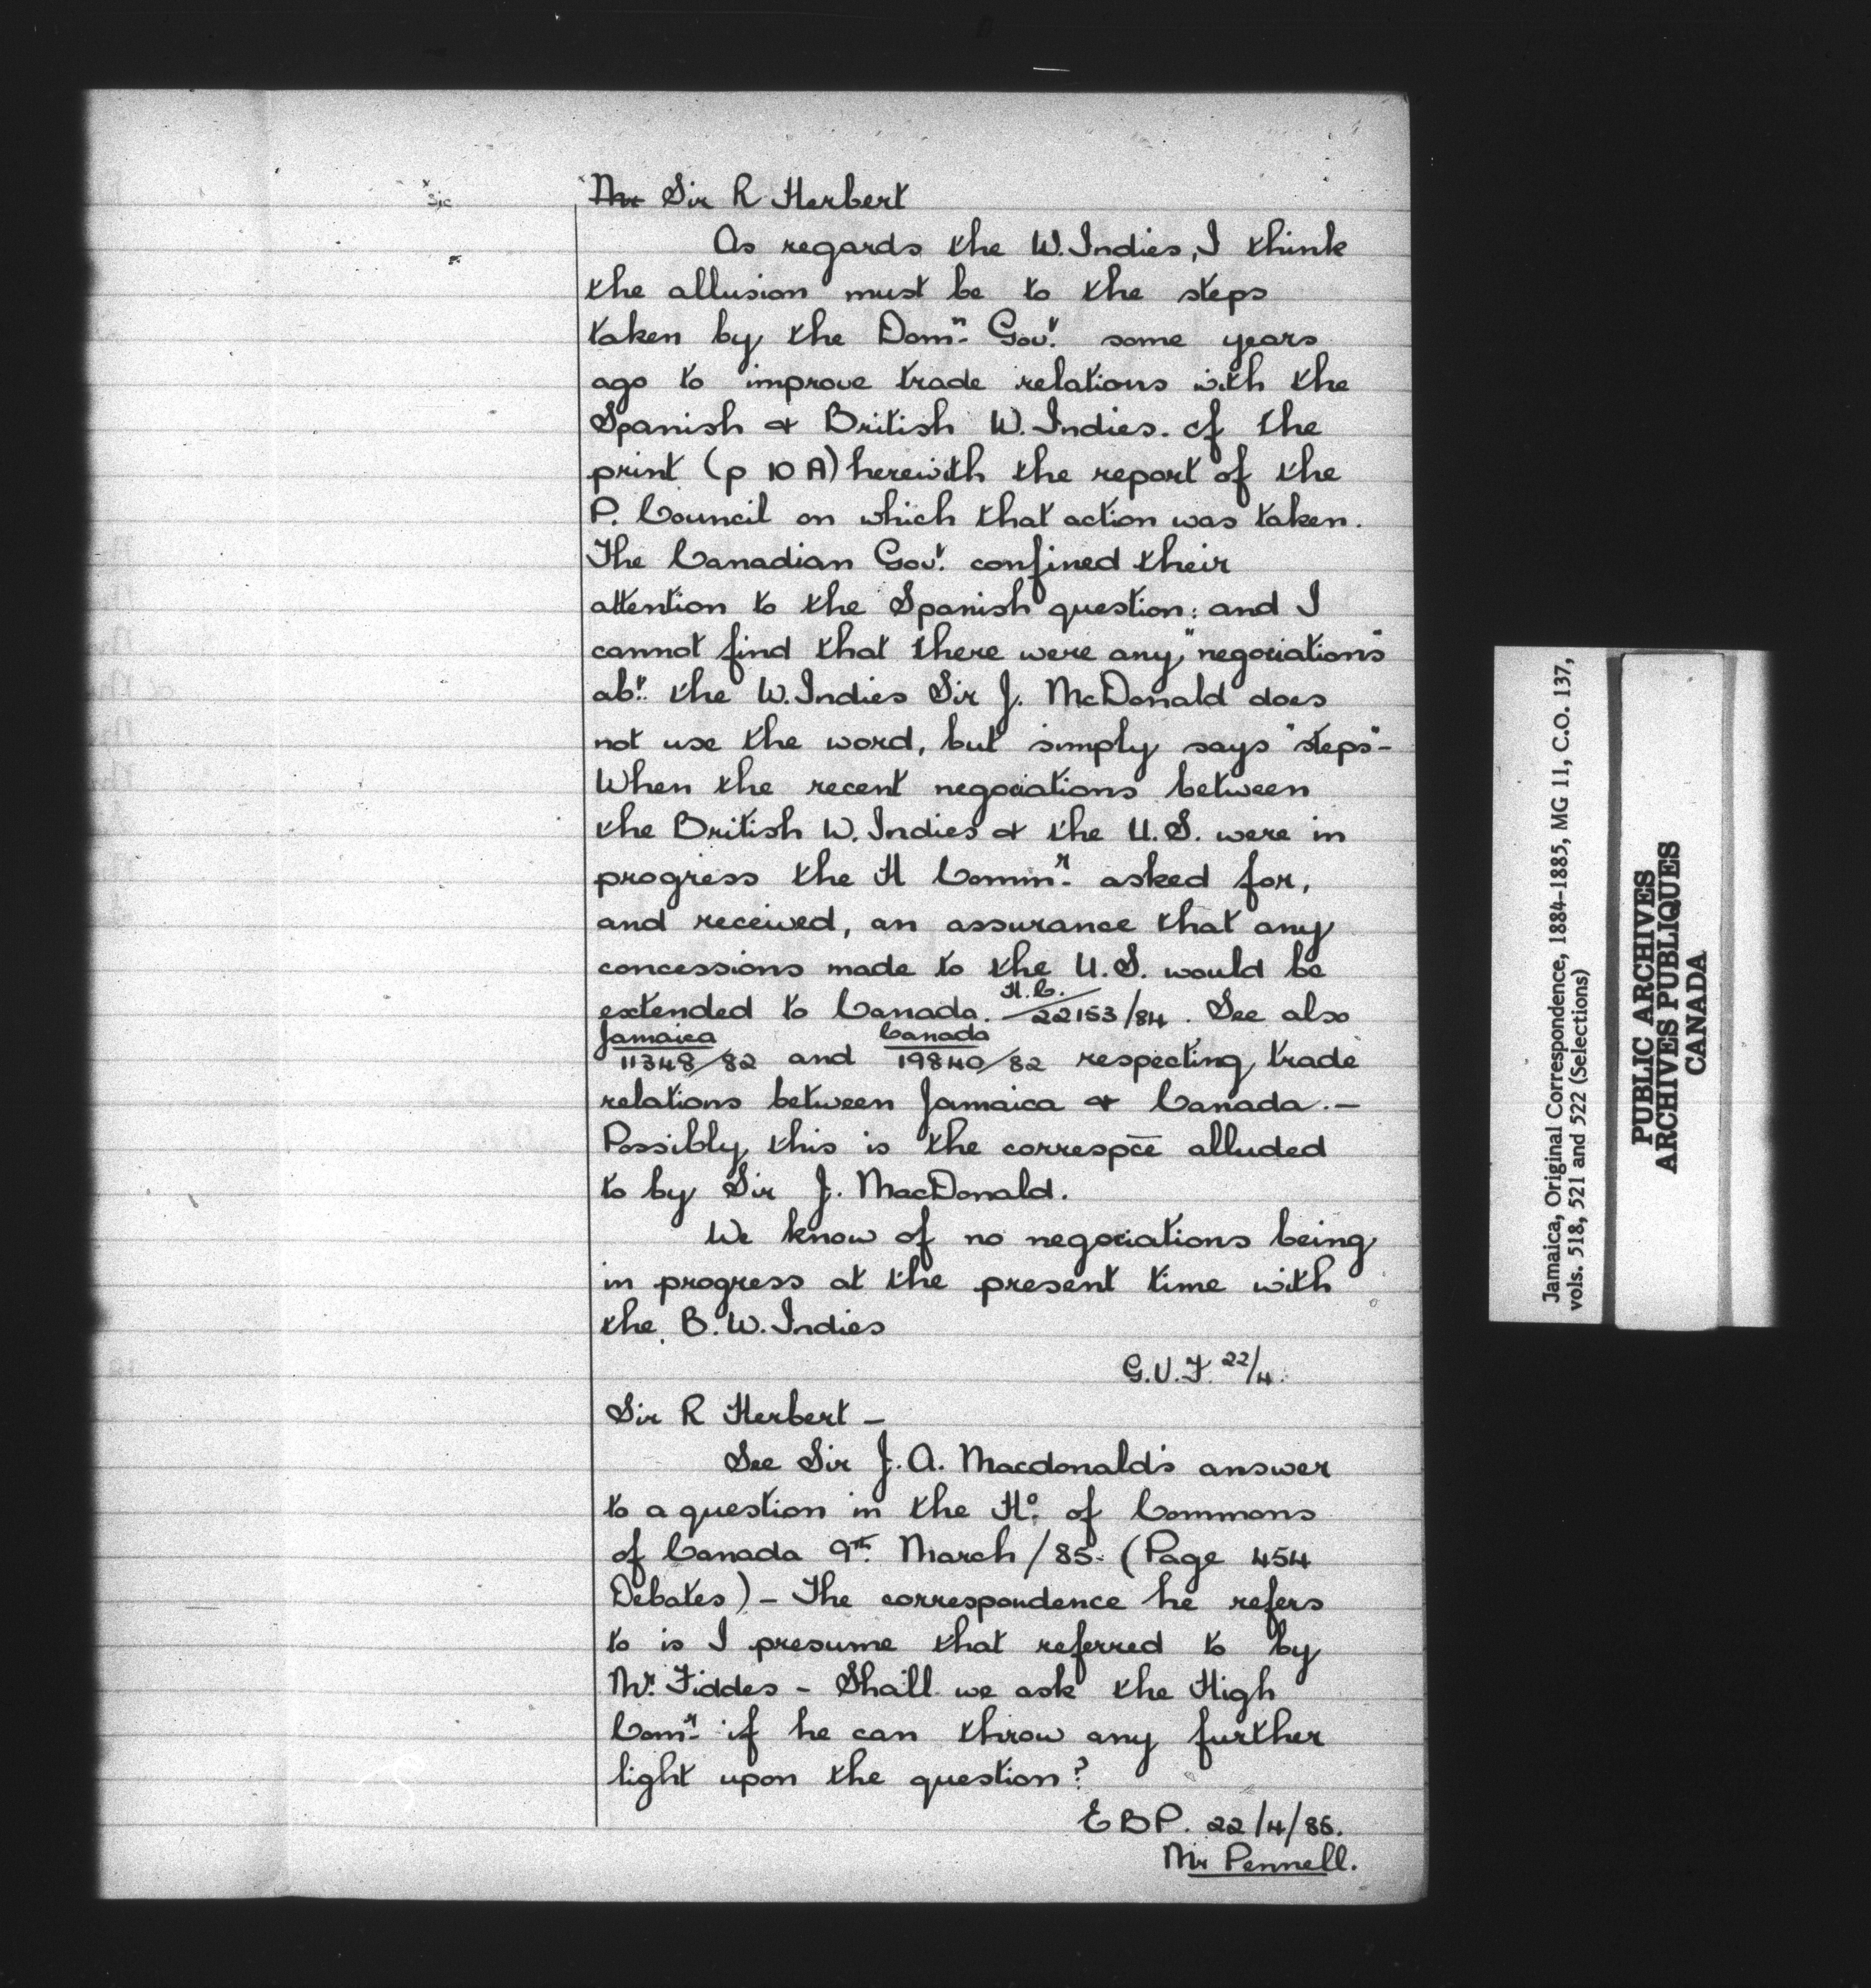 sic
Mr Sir R Herbert
As regards the W. Indies, I think
the allusion must be to the steps
taken by the Domn. Govt. some years
ago to improve trade relations with the
Spanish & British W. Indies. cf the
print (p 10 A) herewith the report of the
P. Council on which that action was taken.
The Canadian Govt. confined their
attention to the Spanish question: and I
cannot find that there were any "negociations"
abt. the W. Indies Sir J. McDonald does
not use the word, but simply says "steps"-
When the recent negociations between
the British W. Indies & the U.S. were in
progress the H Commr. asked for,
and received, an assurance that any
concessions made to the U.S. would be
extended to Canada. H.C./22153/84. See also
Jamaica/11348/82 and Canada/19840/82 respecting trade
relations between Jamaica & Canada.-
Possibly this is the correspce alluded
to by Sir J. MacDonald.
We know of no negociations being
in progress at the present time with
the B. W. Indies
G.V.F. 22/4.
Sir R Herbert -
See Sir J. A. Macdonald's answer
to a question in the Ho. of Commons
of Canada 9th. March /85. (Page 454
Debates) - The correspondence he refers
to is I presume that referred to by
Mr. Fiddes - Shall we ask the High
Comr. if he can throw any further
light upon the question?
EBP. 22/4/85.
Mr Pennell.
Jamaica, Original Correspondence, 1884-1885, MG 11, C.O. 137,
vols. 518, 521 and 522 (Selections)
PUBLIC ARCHIVES
ARCHIVES PUBLIQUES
CANADA